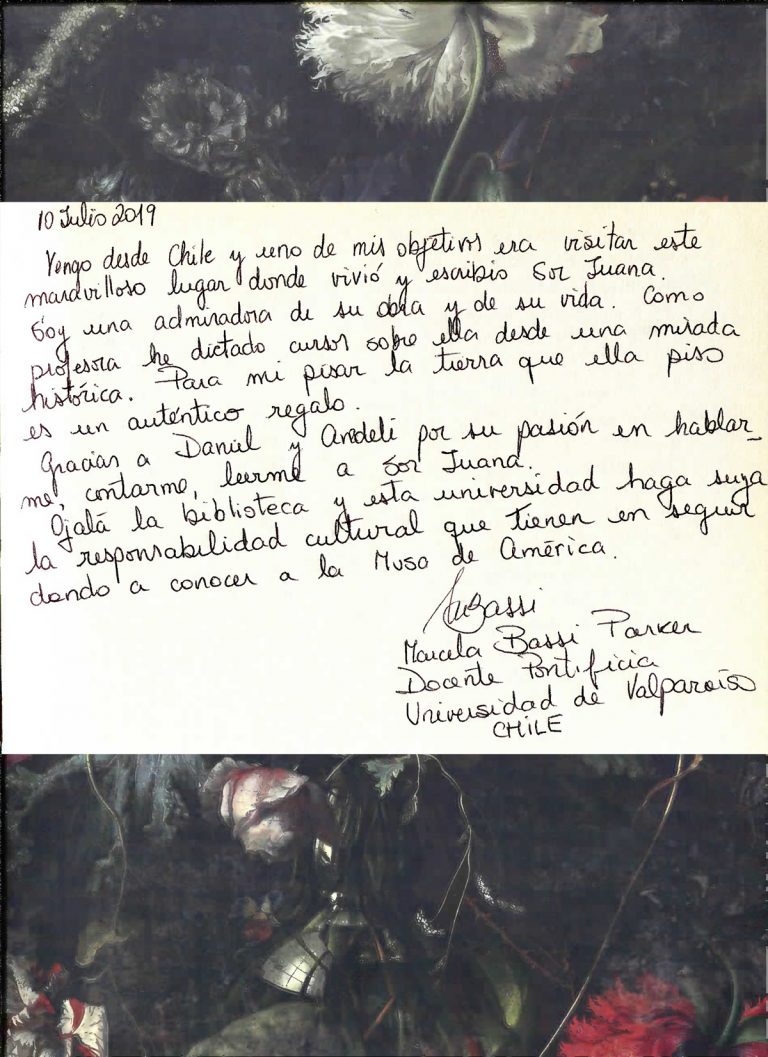 10 Julio 2019
Vengo desde Chile y uno de mis objetivos era visitar este
maravilloso lugar donde vivió y escribio Sor Juana.
Soy una admiradora de su obra y de su vida. Como
profesora he dictado cursos sobre ella desde una mirada
histórica. Para mi pisar la tierra que ella piso
es un auténtico regalo.
Gracias a Daniel y Anddeli por su pasión en hablar_
me, contarme, leerme a Sor Juana.
Ojalá la biblioteca y esta universidad haga suya
la responsabilidad cultural que tienen en seguir
dando a conocer a la Musa de América.
Bassi
Marcela Bassi Parker
Docente Pontificia
Universidad de Valparaíso
CHILE